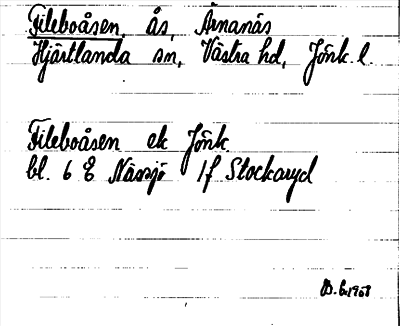 Fileboåsen, ås, Årnanäs
Hjärtlanda sn, Västra hd, Jönk. l.
Fileboåsen ek Jönk.
bl. 6 E Nässjö 1f Stockaryd
B. 1958